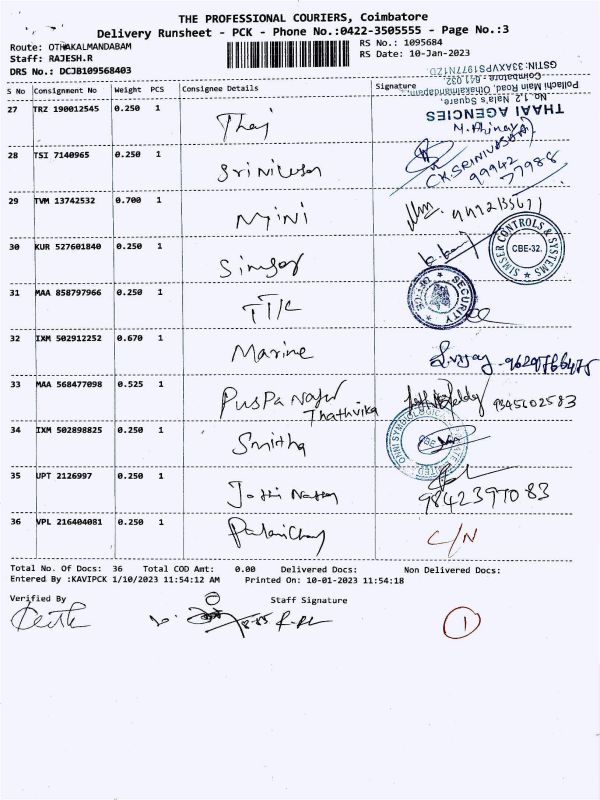 THE PROFESSIONAL COURIERS, Coimbatore
Delivery Runsheet - PCK - Phone No.:0422-3505555 - Page No.:3
Route: OTHAKALMANDABAM
RS No.: 1095684
Staff: RAJESH.R
RS Date: 10-Jan-2023
DRS No.: DCJB109568403
GSTIN: 33AXVPS1977N1ZD
Coimbatore - 641 032.
Pollachi Main Road, Othakalmandapam,
No. 1,2, Nala's Square,
THAAI AGENCIES
S No Consignment No Weight PCS Consignee Details Signature
27 TRZ 190012545 0.250 1 Thai
28 TSI 7140965 0.250 1 Srinivasan CK.SRINIVASAN
99942
77988
29 TVM 13742532 0.700 1 Mini
30 KUR 527601840 0.250 1 Simser SIMSER CONTROLS & SYSTEMS
CBE-32.
31 MAA 858797966 0.250 1 TTK SECURITY
32 IXM 502912252 0.670 1 Marine S.Vijay - 9629766475
33 MAA 568477098 0.525 1 Puspa Nayer
Thathvika 9345602583
34 IXM 502898825 0.250 1 Smitha
35 UPT 2126997 0.250 1 9842397083
36 VPL 216404081 0.250 1 C/N
Total No. Of Docs: 36 Total COD Amt: 0.00 Delivered Docs: Non Delivered Docs:
Entered By :KAVIPCK 1/10/2023 11:54:12 AM Printed On: 10-01-2023 11:54:18
Verified By Staff Signature
1